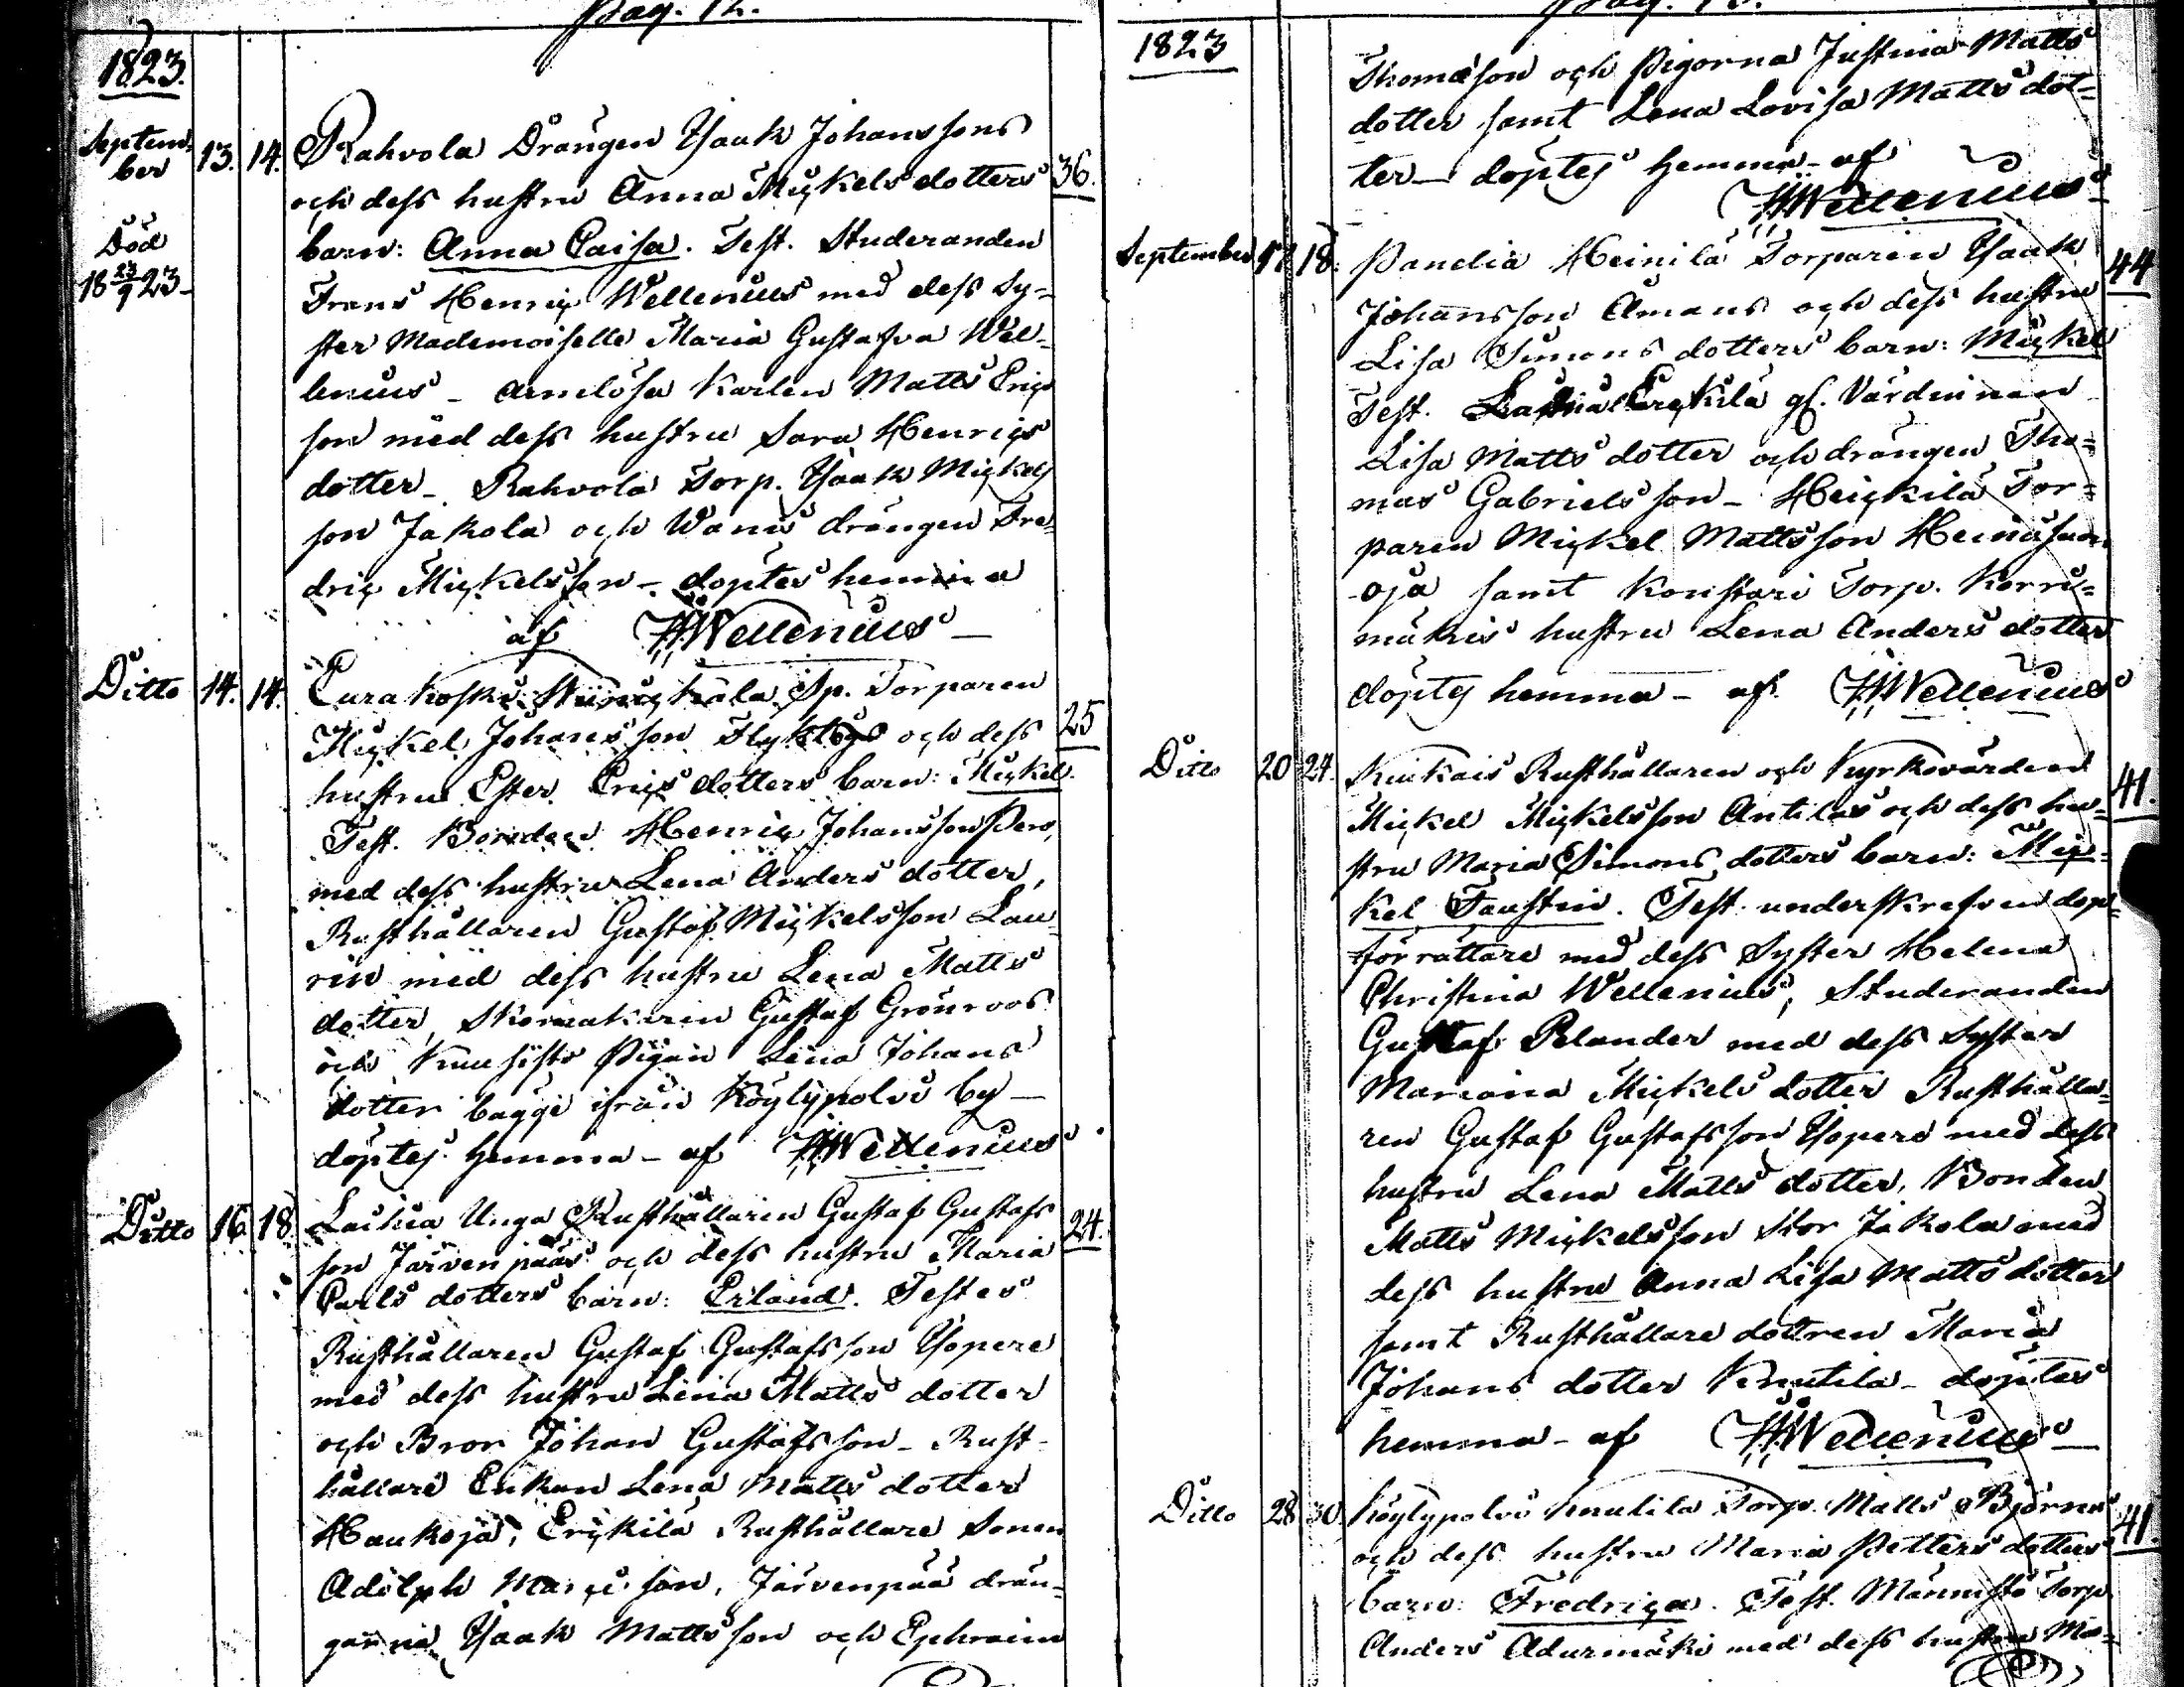 Pag. 12.
1823.
Septem-
ber
13. 14.
Död
18 23/9 23 -
Rahvola Drängen Isaak Johanssons
och dess hustru Anna Mickels dotters
36.
barn: Anna Caisa. Test. Studeranden
Frans Henric Wellenius med dess Sy-
ster Mademoiselle Maria Gustafva Wel-
lenius - Arnilösa Karlen Matts Erics
son med dess hustru Sara Henrics
dotter - Rahvola Torp. Isaak Mickels
son Jakola och Wanis drängen Fre-
dric Mickelsson - döptes hemma
af HHWellenius -
Ditto 14. 14.
Eurakoski Sp. Torparen
Mickel Johansson och dess
25
hustru Ester Erics dotters barn: Mickel.
Test. Bonden Henric Johansson Pero,
med dess hustru Lena Anders dotter,
Rusthållaren Gustaf Mickelsson Lau-
rin med dess hustru Lena Matts
dotter, Skomakaren Gustaf Grönroos
och Kuusisto Pigan Lena Johans
dotter bägge ifrån Köylypolvi by -
döptes hemma - af HHWellenius
Ditto 16. 18
Laihia Unga Rusthållaren Gustaf Gustafs
24.
son Järvenpääs och dess hustru Maria
Carls dotters barn: Erland. Testes
Rusthållaren Gustaf Gustafsson Yopere
med dess hustru Lena Matts dotter
och Bror Johan Gustafsson - Rust-
hållare Enkan Lena Matts dotter
Haukoja, Erckilä Rusthållare Sonen
Adolph Marcisson, Järvenpää drän-
garna Isaak Mattsson och Ephraim
1823
Thomasson och Pigorna Justina Matts
dotter samt Lena Lovisa Matts dot-
ter - döptes hemma - af
HHWellenius -
September 17 18.
Panelia Heinilä Torparen Isaak
44
Johansson Åmans och dess hustru
Lisa Simons dotters barn: Mickel
Test. Erckilä gl. Värdinnan
Lisa Matts dotter och drängen Tho-
mas Gabrielsson - Heickilä Tor-
paren Mickel Mattsson Heinisuon
oja samt Konstari Torp. Korru-
mäkis hustru Lena Anders dotter
döptes hemma - af HHWellenius
Ditto 20 24.
Kiukais Rusthållaren och Kyrkovärden
41.
Mickel Mickelsson Antilas och dess hu-
stru Maria Simons dotters barn: Mic-
kel Faustin. Test. underskrefven dop-
förrättare med dess Syster Helena
Christina Wellenius, Studeranden
Gustaf Polander med dess Syster
Mariana Mickels dotter Rusthålla-
ren Gustaf Gustafsson Yopere med dess
hustru Lena Matts dotter, Bonden
Matts Mickelsson Stor Jakola med
dess hustru Anna Lisa Matts dotter
samt Rusthållare dottren Maria
Johans dotter Knutila - döptes
hemma - af HHWellenius -
Ditto 28 30.
Köylypolvi Knutila Torp. Matts Björns
41.
och dess hustru Maria Petters dotters
barn: Fredrica. Test. Männistö Torp.
Anders Adurmäki med dess hustru Ma-